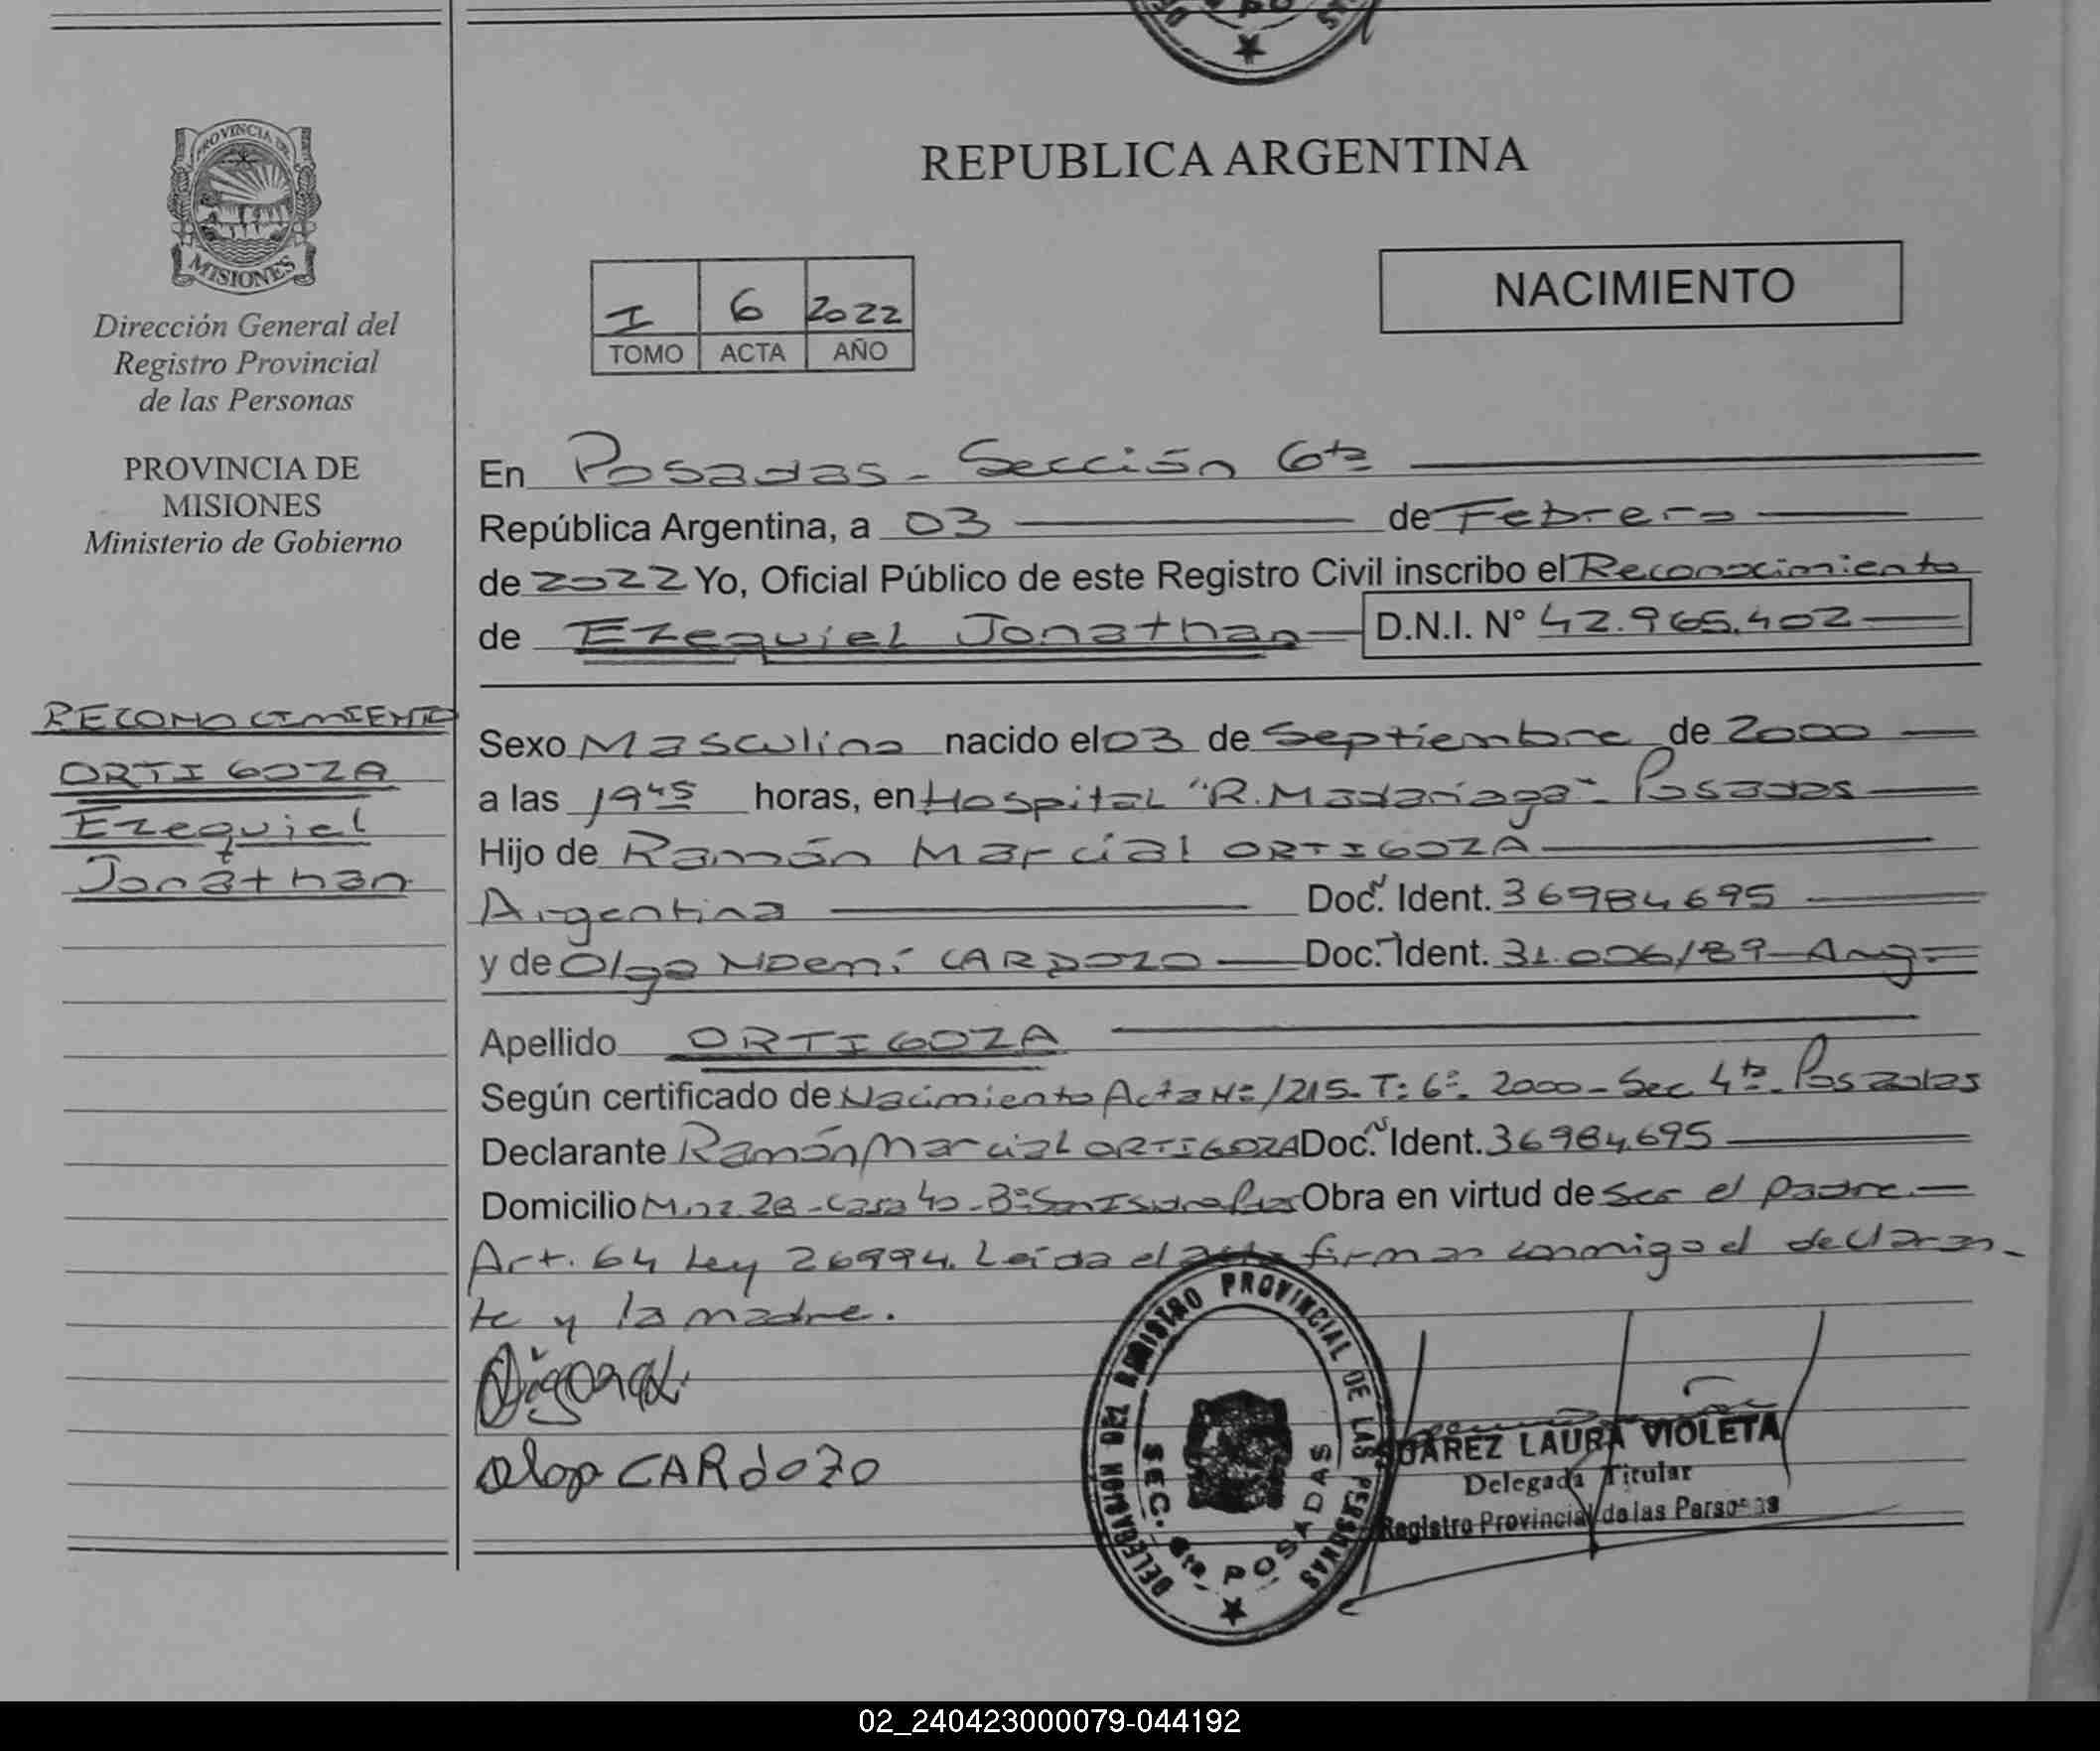 PROVINCIA DE
MISIONES
Dirección General del
Registro Provincial
de las Personas
PROVINCIA DE
MISIONES
Ministerio de Gobierno
RECONOCIMIENTO
ORTIGOZA
Ezequiel
Jonathan
REPUBLICA ARGENTINA
I 6 2022
TOMO ACTA AÑO
NACIMIENTO
En Posadas - Sección 6ta
República Argentina, a 03 de Febrero
de 2022 Yo, Oficial Público de este Registro Civil inscribo el Reconocimiento
de Ezequiel Jonathan D.N.I. N° 42.965.402
Sexo Masculino nacido el 03 de Septiembre de 2000
a las 19 45 horas, en Hospital "R. Madariaga" - Posadas
Hijo de Ramón Marcial ORTIGOZA
Argentina Doc. Ident. 36984695
y de Olga Noemí CARDOZO Doc. Ident. 31.006189 - Arg
Apellido ORTIGOZA
Según certificado de Nacimiento Acta N: 1215 - T: 6º - 2000 - Sec 4ta - Posadas
Declarante Ramón Marcial ORTIGOZA Doc. Ident. 36984.695
Domicilio Mnz. 28 - Casa 40 - Bº San Isidro Obra en virtud de ser el padre. -
Art. 64 Ley 26994. Leída el acta firman conmigo el declaran-
te y la madre.
Olga CARdoZo
DELEGACION DEL REGISTRO PROVINCIAL DE LAS PERSONAS
SEC. 6ta POSADAS
SUAREZ LAURA VIOLETA
Delegada Titular
Registro Provincial de las Personas
02_240423000079-044192